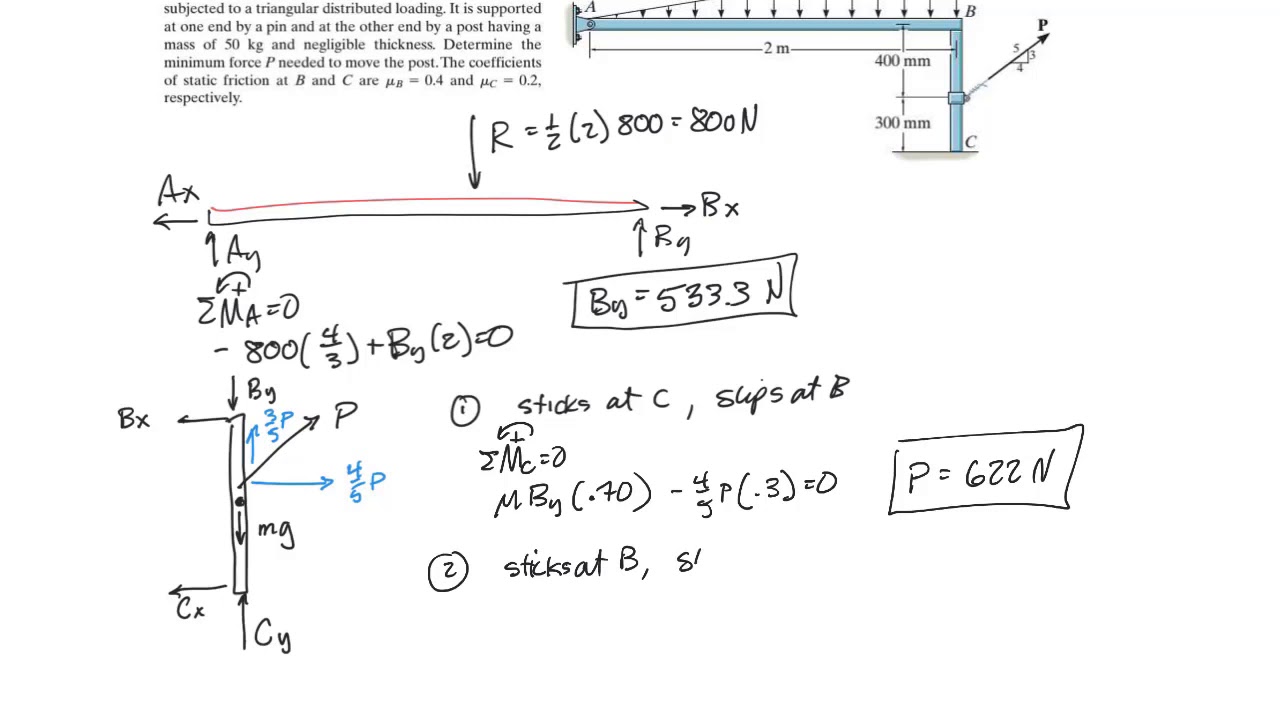 subjected to a triangular distributed loading. It is supported
at one end by a pin and at the other end by a post having a
mass of 50 kg and negligible thickness. Determine the
minimum force P needed to move the post. The coefficients
of static friction at B and C are μB = 0.4 and μC = 0.2,
respectively.
A
B
2 m
400 mm
300 mm
C
P
5
3
4
R = 1/2 (2) 800 = 800 N
Ax
Bx
Ay
By
ΣMA = 0
+
- 800 (4/3) + By (2) = 0
By = 533.3 N
By
Bx
3/5 P
P
4/5 P
mg
Cx
Cy
① sticks at C, slips at B
+
ΣMc = 0
μ By (.70) - 4/5 P (.3) = 0
P = 622 N
② sticks at B, sl